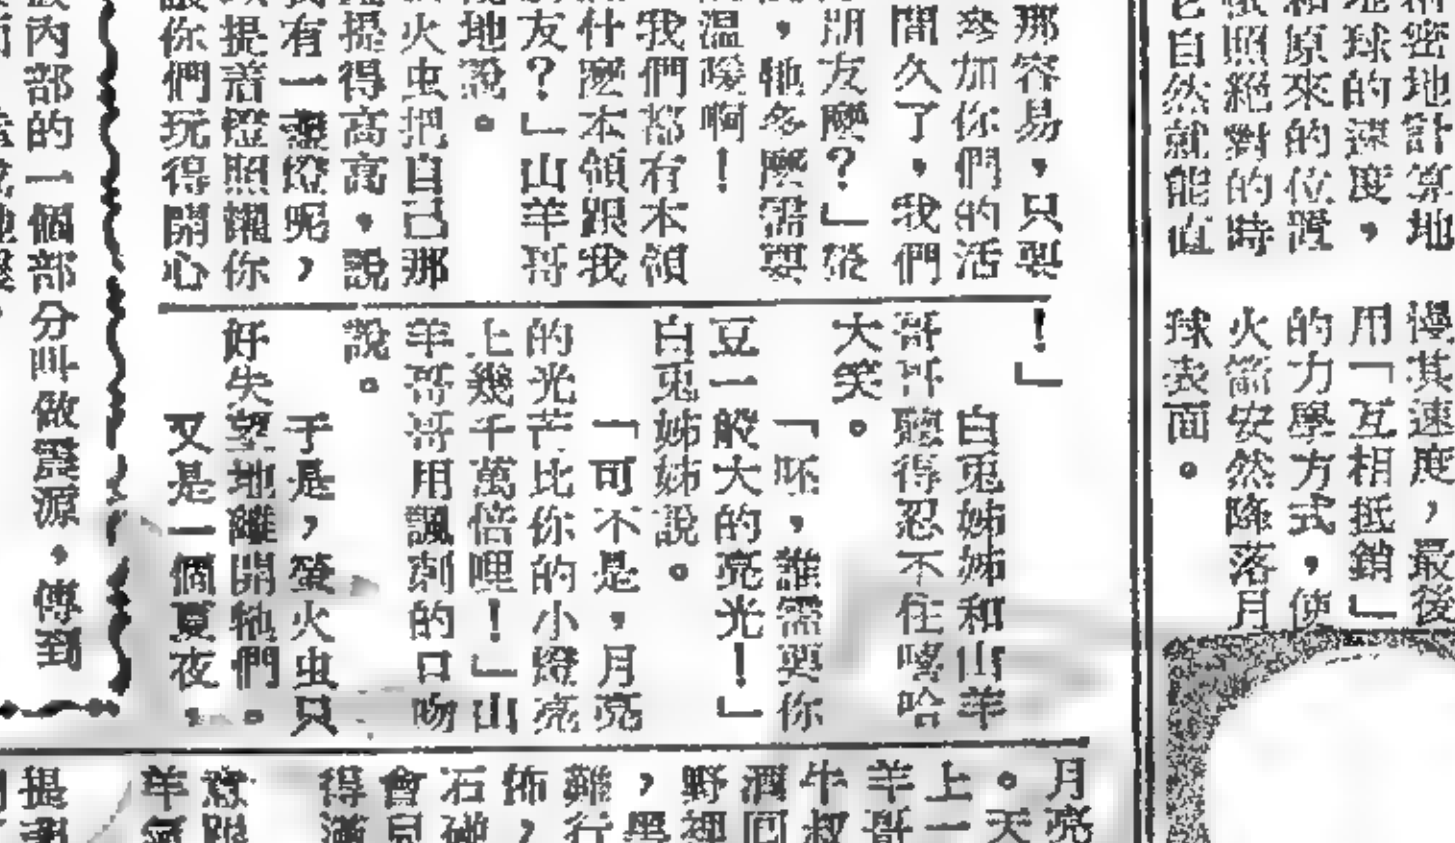 精密地計算地
地球的速度，
和原來的位置
照絕對的時
它自然就能直
慢其速度，最後
用「互相抵銷」
的力學方式，使
火箭安然降落月
球表面。
那容易，只要
參加你們的活
間久了，我們
朋友麼？」螢
，牠多麼需要
溫暖啊！
我們都有本領
什麼本領跟我
友？」山羊哥
地說。
火虫把自己那
提得高高，說
有一盞燈呢，
提着燈照耀你
你們玩得開心
！」
白兎姊姊和山羊
哥哥聽得忍不住嘻哈
大笑。
「呸，誰需要你
豆一般大的亮光！」
白兎姊姊說。
「可不是，月亮
的光芒比你的小燈亮
上幾千萬倍哩！」山
羊哥哥用諷刺的口吻
說。
于是，螢火虫只
好失望地離開牠們。
又是一個夏夜，
內部的一個部分叫做震源，傳到
月亮
。天
上一
羊哥
牛叔
酒囘
野裡
，學
難行
佈，
石碰
會見
得滿
意跟
羊氣